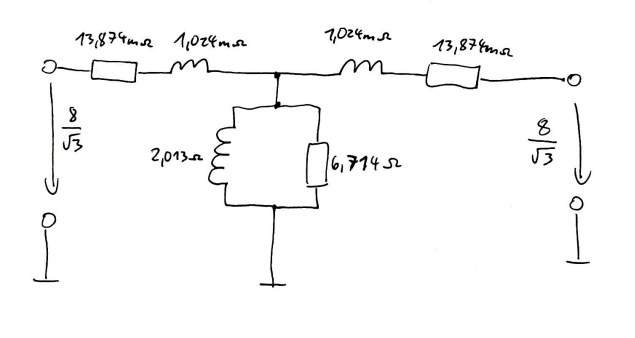 13,874mΩ 1,024mΩ 1,024mΩ 13,874mΩ
8/√3 2,013Ω 6,714Ω 8/√3